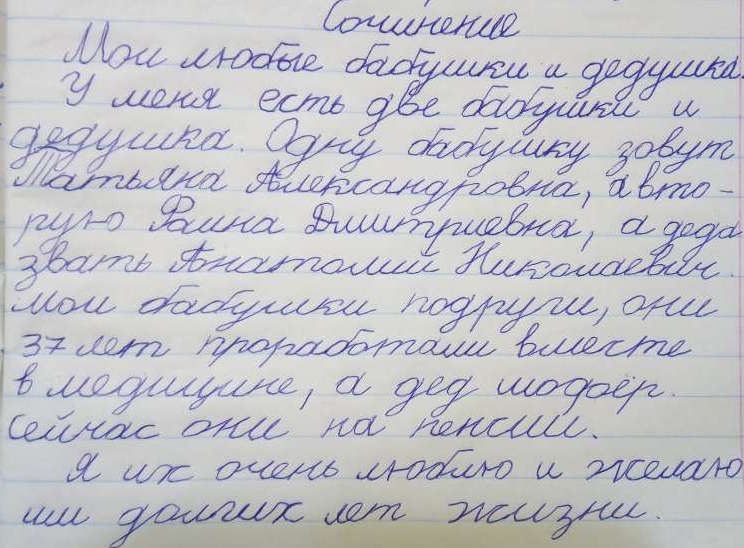 Сочинение
Мои любые бабушки и дедушка.
У меня есть две бабушки и
дедушка. Одну бабушку зовут
Татьяна Александровна, а вто-
рую Раина Дмитриевна, а деда
звать Анатолий Николаевич.
мои бабушки подруги, они
37 лет проработали вместе
в медицине, а дед шофёр.
Сейчас они на пенсии.
Я их очень люблю и желаю
им долгих лет жизни.